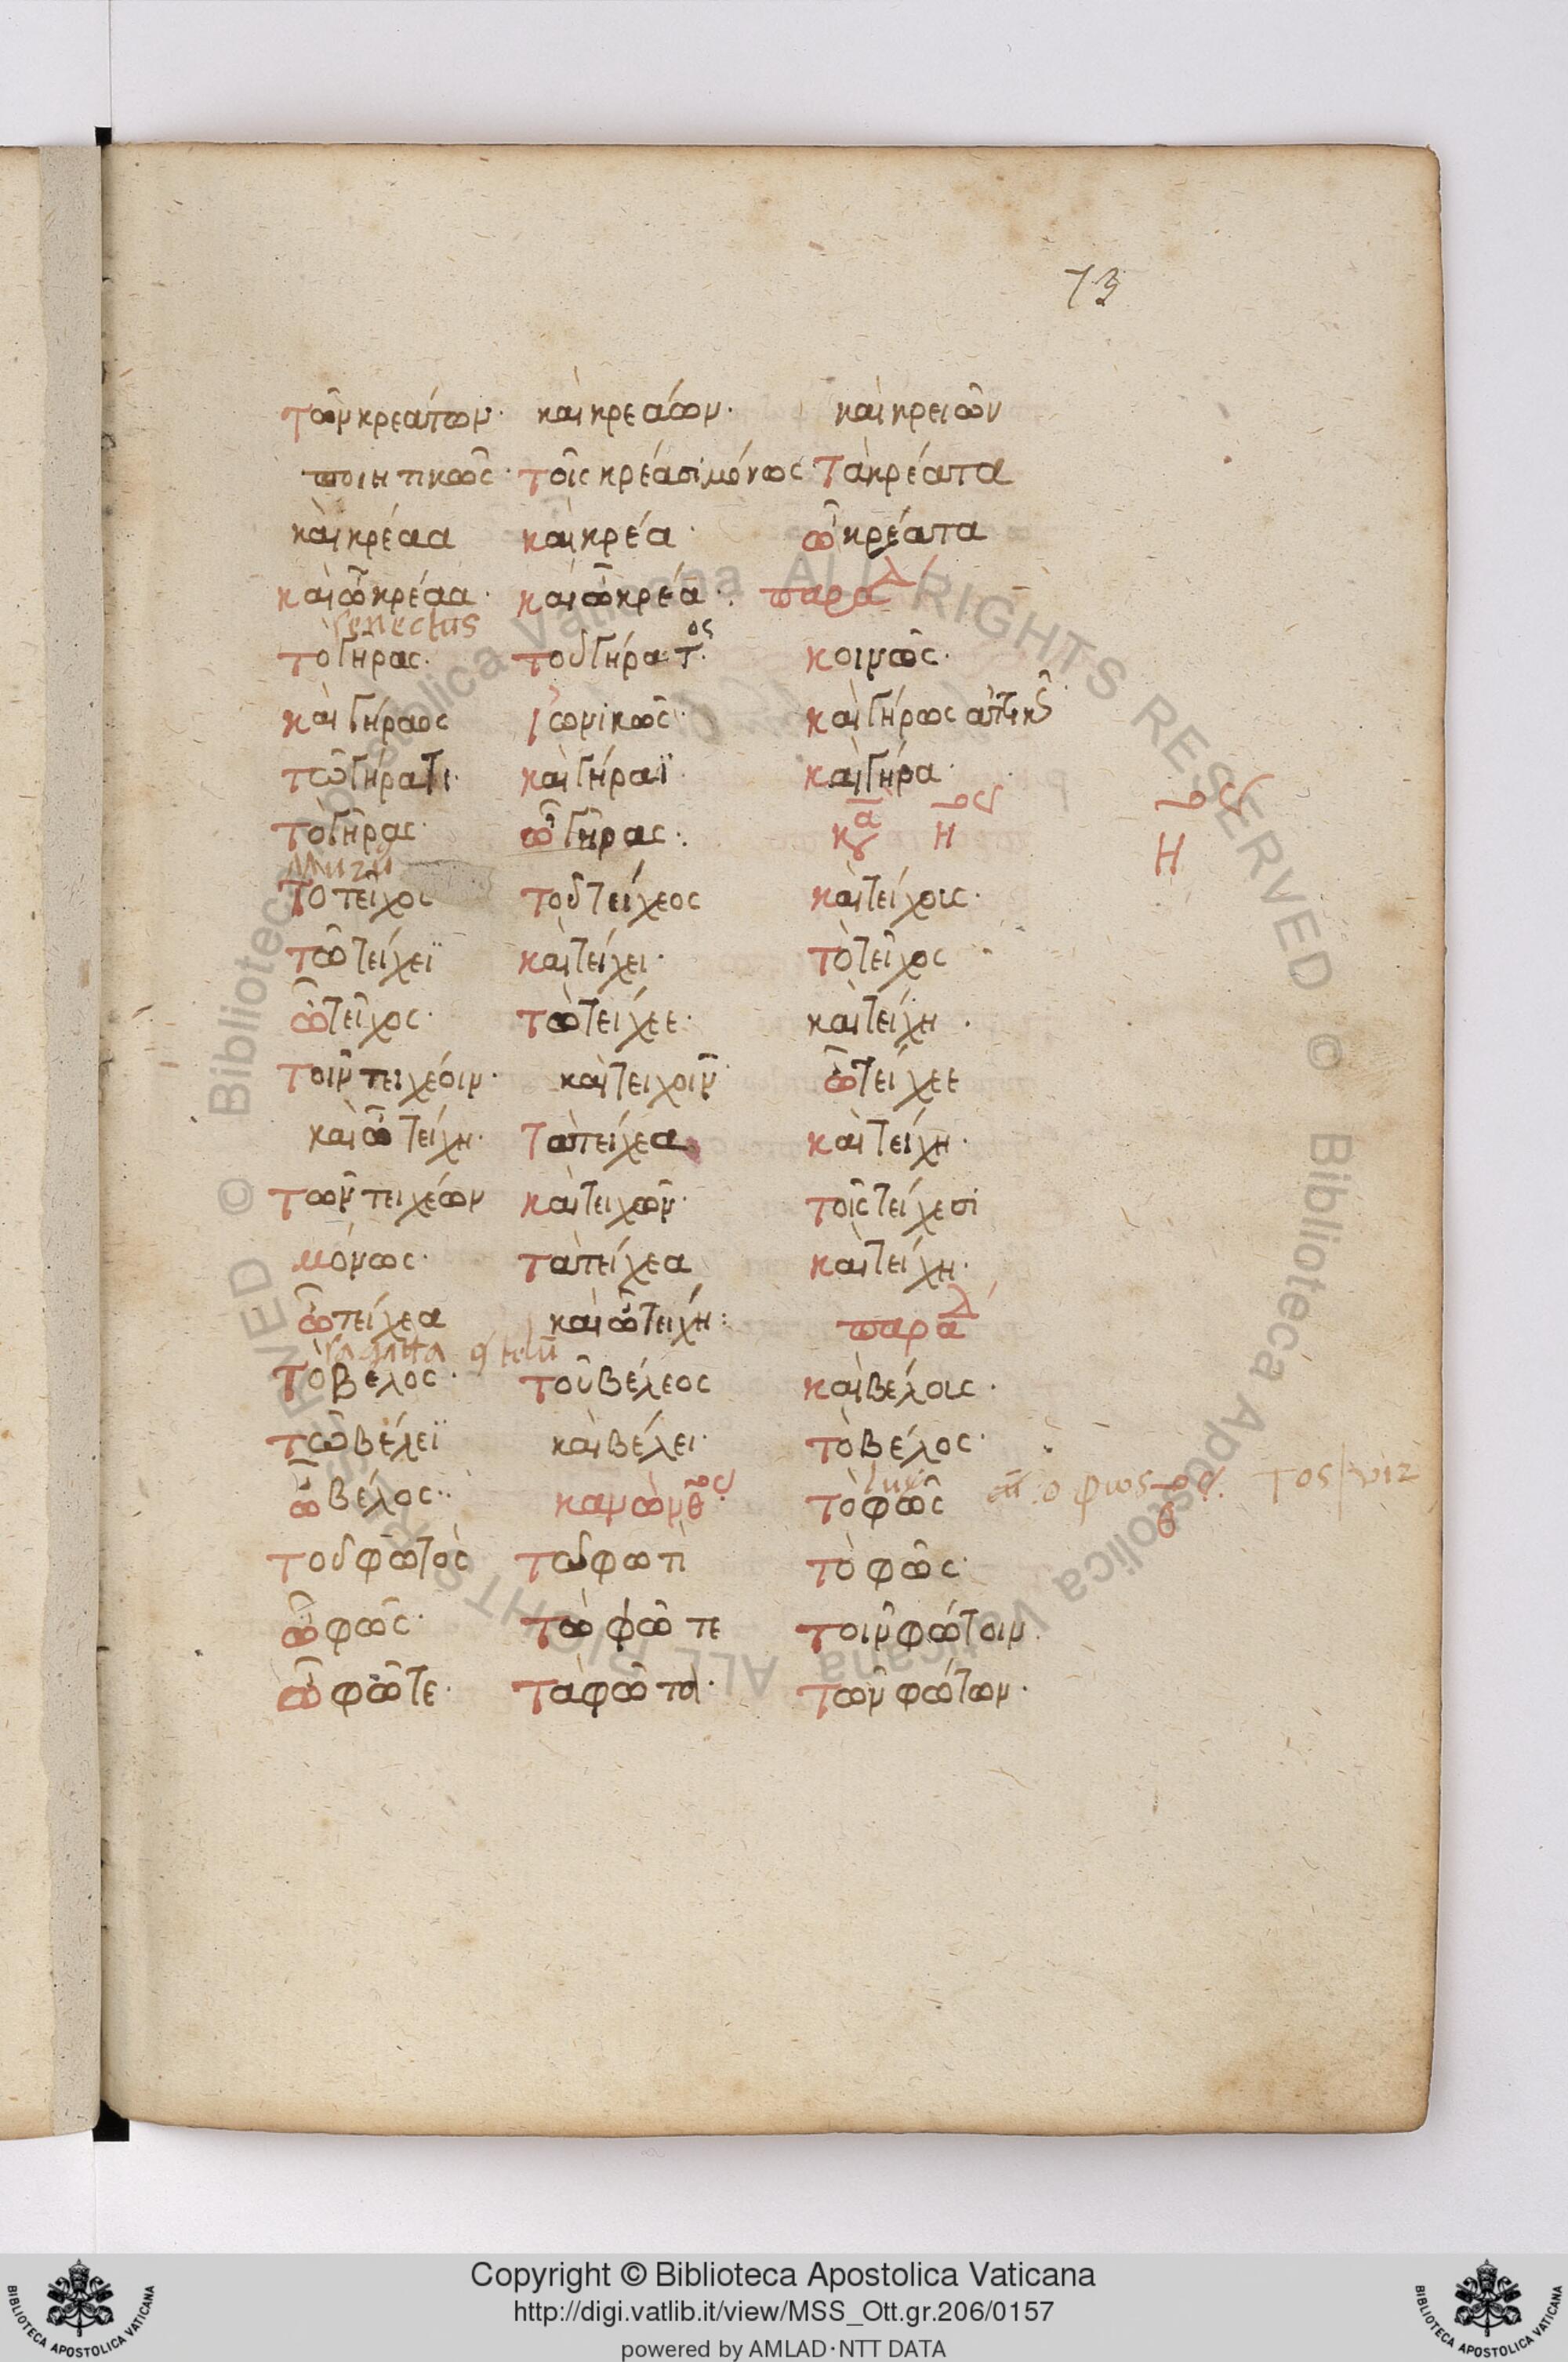 73
τῶν κρεάτων· καὶ κρεάων· καὶ κρειῶν
ποιητικῶς· τοῖς κρέασι μόνως· τὰ κρέατα
καὶ κρέαα καὶ κρέα· ὦ κρέατα
καὶ ὦ κρέαα· καὶ ὦ κρέα· παραλ
senectus
το γῆρας· τοῦ γήρατος· κοινῶς·
καὶ γήραος ἰωνικῶς· καὶ γήρως ἀττικς
τῶ γήρατι· καὶ γήραϊ· καὶ γήρα·
τὸ γῆρας· ὦ γῆρας: κα Η ος ος
Η
το τεῖχος τοῦ τείχεος καὶ τείχους·
τῶ τείχεϊ καὶ τείχει· τὸ τεῖχος
ὦ τεῖχος· τὼ τείχεε· καὶ τείχη·
τοῖν τειχέοιν· καὶ τειχοῖν· ὦ τείχεε
καὶ ὦ τείχη· τὰ τείχεα καὶ τείχη·
τῶν τειχέων καὶ τειχῶν· τοῖς τείχεσι
μόνως· τὰ τείχεα καὶ τείχη·
ὦ τείχεα καὶ ὦ τείχη: παραλ
sagitta
τὸ βέλος· τοῦ βέλεος καὶ βέλους·
τῶ βέλεϊ καὶ βέλει· τὸ βέλος·
ὦ βέλος·· κανὼν θος τὸ φῶς
τοῦ φωτὸς τῶ φωτὶ τὸ φῶς·
ὦ φῶς· τὼ φῶτε τοῖν φώτοιν·
ὦ φῶτε· τὰ φῶτα· τῶν φώτων·
Copyright © Biblioteca Apostolica Vaticana
http://digi.vatlib.it/view/MSS_Ott.gr.206/0157
powered by AMLAD·NTT DATA